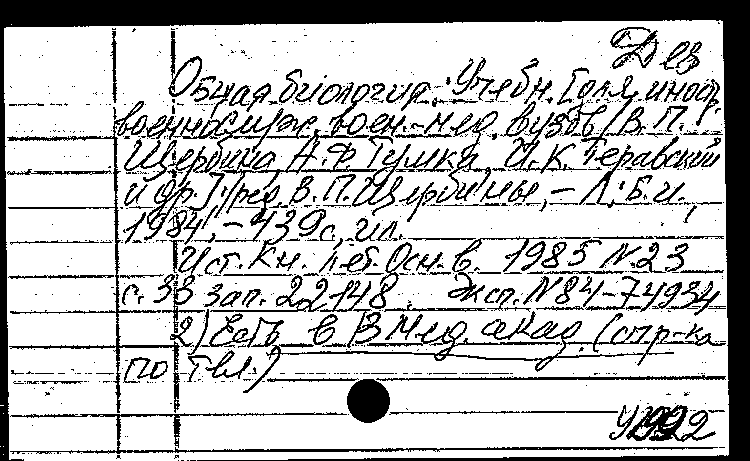 Дез
Общая биология: Учебн. [для иностр
военнослуж. воен.-мед. вузов / В. П.
Щербина, А. Ф. Тумка, И. К. Теравский
и др.]; ред. В. П. Щербины, - Л.: Б. и.,
1984, - 439 с., ил.
Ист. Кн. лет. Осн. в. 1985 N 23
с. 33 зап. 22148. Эксп. N 84-74934
2) Есть в В Мед. акад. (спр-ка
по тел.)